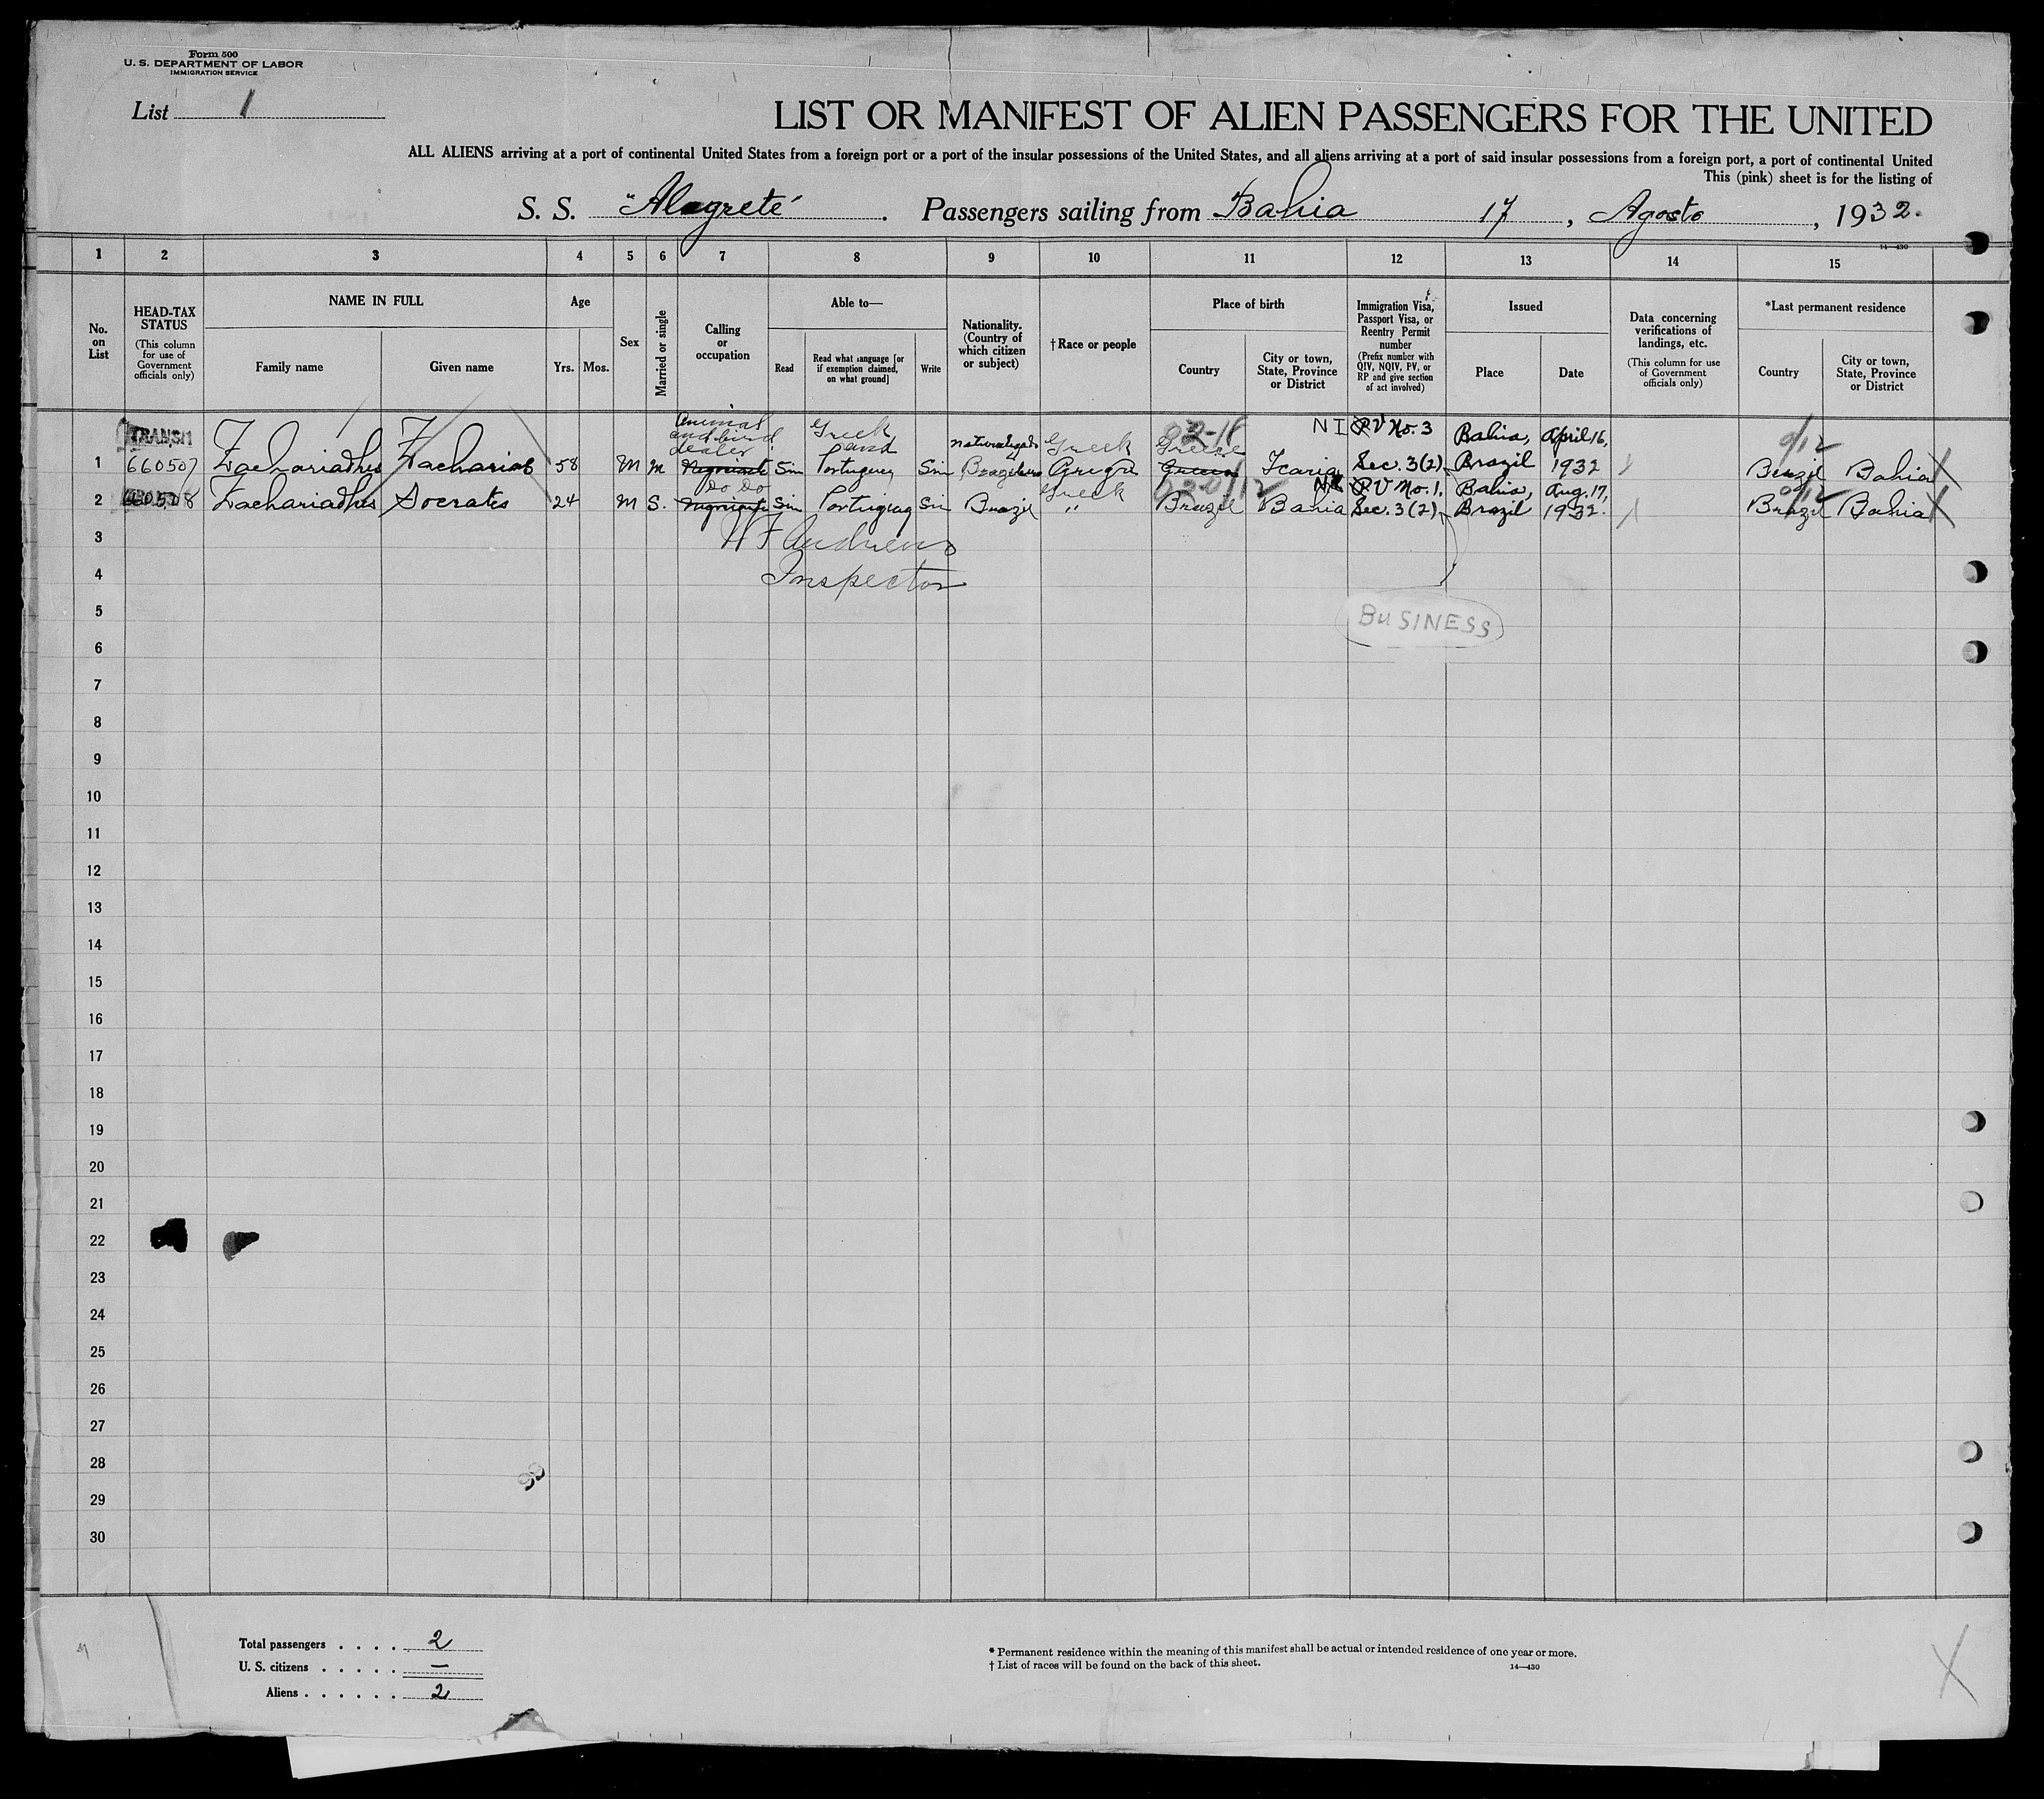 Form 500
U. S. DEPARTMENT OF LABOR
IMMIGRATION SERVICE
List 1
LIST OR MANIFEST OF ALIEN PASSENGERS FOR THE UNITED
ALL ALIENS arriving at a port of continental United States from a foreign port or a port of the insular possessions of the United States, and all aliens arriving at a port of said insular possessions from a foreign port, a port of continental United
This (pink) sheet is for the listing of
S. S. "Alegrete" . Passengers sailing from Bahia 17 , Agosto , 1932.
14—430
1 2 3 4 5 6 7 8 9 10 11 12 13 14 15
No. on List
HEAD-TAX STATUS
(This column for use of Government officials only)
NAME IN FULL
Family name
Given name
Age
Yrs.
Mos.
Sex
Married or single
Calling or occupation
Able to—
Read
Read what language [or if exemption claimed, on what ground]
Write
Nationality. (Country of which citizen or subject)
†Race or people
Place of birth
Country
City or town, State, Province or District
Immigration Visa, Passport Visa, or Reentry Permit number
(Prefix number with QIV, NQIV, PV, or RP and give section of act involved)
Issued
Place
Date
Data concerning verifications of landings, etc.
(This column for use of Government officials only)
*Last permanent residence
Country
City or town, State, Province or District
TRANSIT Animal and bird dealer Greek and naturalized Greek Greece NI PV No. 3 Bahia, April 16,
1 660507 Zachariadhis Zacharias 58 M M Sim Portuguez Sim Grega Icaria Sec. 3(2) Brazil 1932 Brazil Bahia
Do Do Greek PV No. 1. Bahia, Aug. 17,
2 660508 Zachariadhis Socrates 24 M S. Sim Portuguez Sim Brazil " Brazil Bahia Sec. 3(2) Brazil 1932. Brazil Bahia
3
W F Andrews
4
Inspector
5
BUSINESS
6
7
8
9
10
11
12
13
14
15
16
17
18
19
20
21
22
23
24
25
26
27
28
29
30
Total passengers . . . . 2
U. S. citizens . . . . . —
Aliens . . . . . . 2
* Permanent residence within the meaning of this manifest shall be actual or intended residence of one year or more.
† List of races will be found on the back of this sheet.
14—430